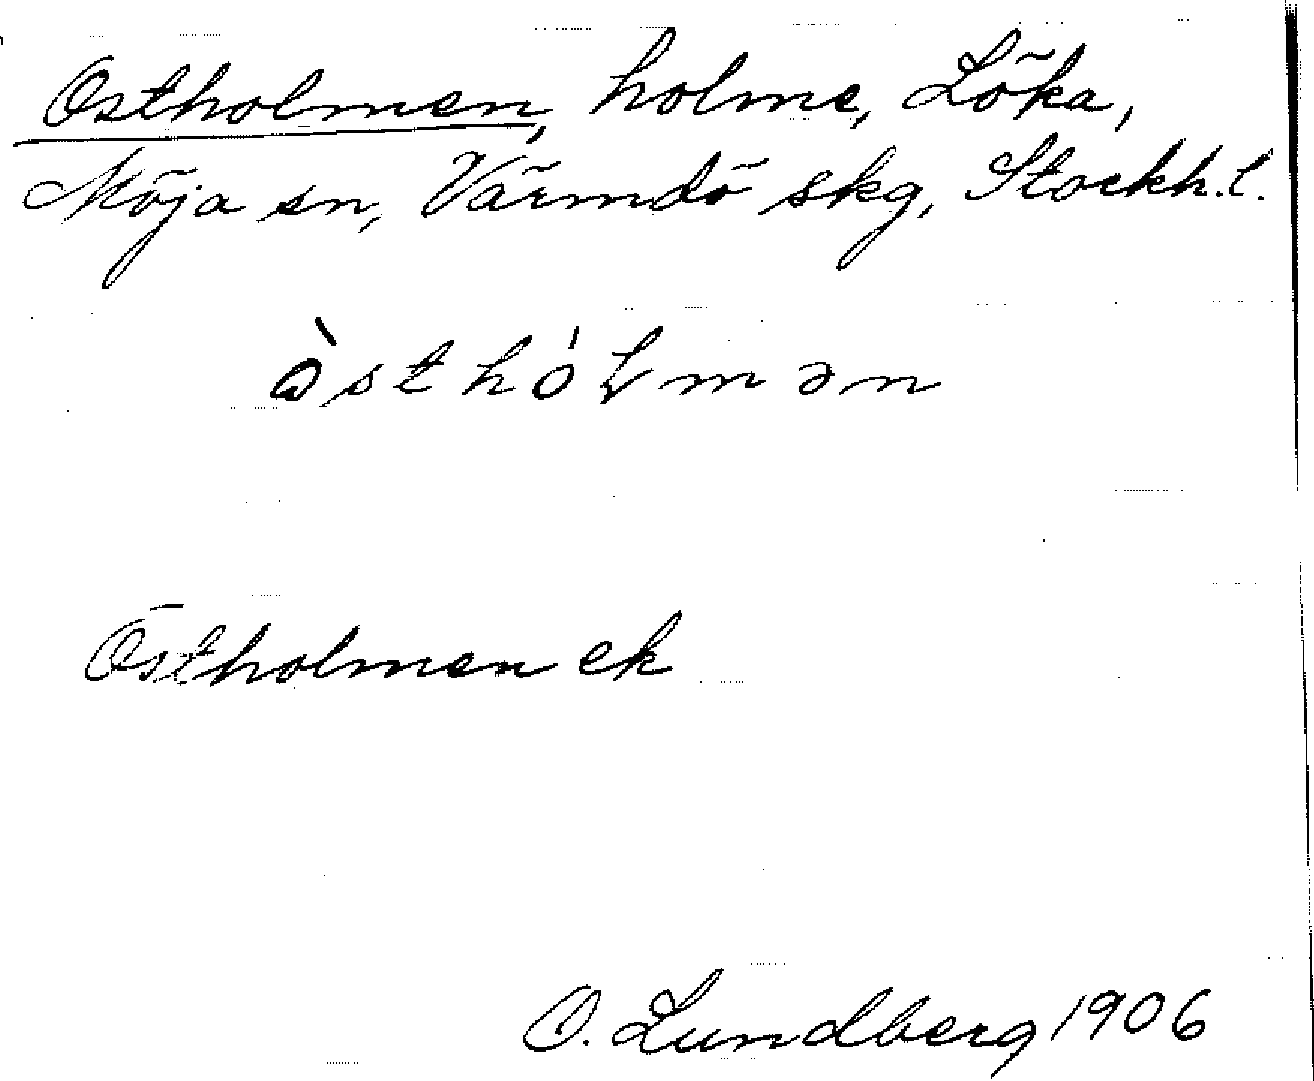 Östholmen, holme, Löka,
Möja sn, Värmdö skg, Stockh. l.
ὼsthólmən
Östholmen ek
O. Lundberg 1906